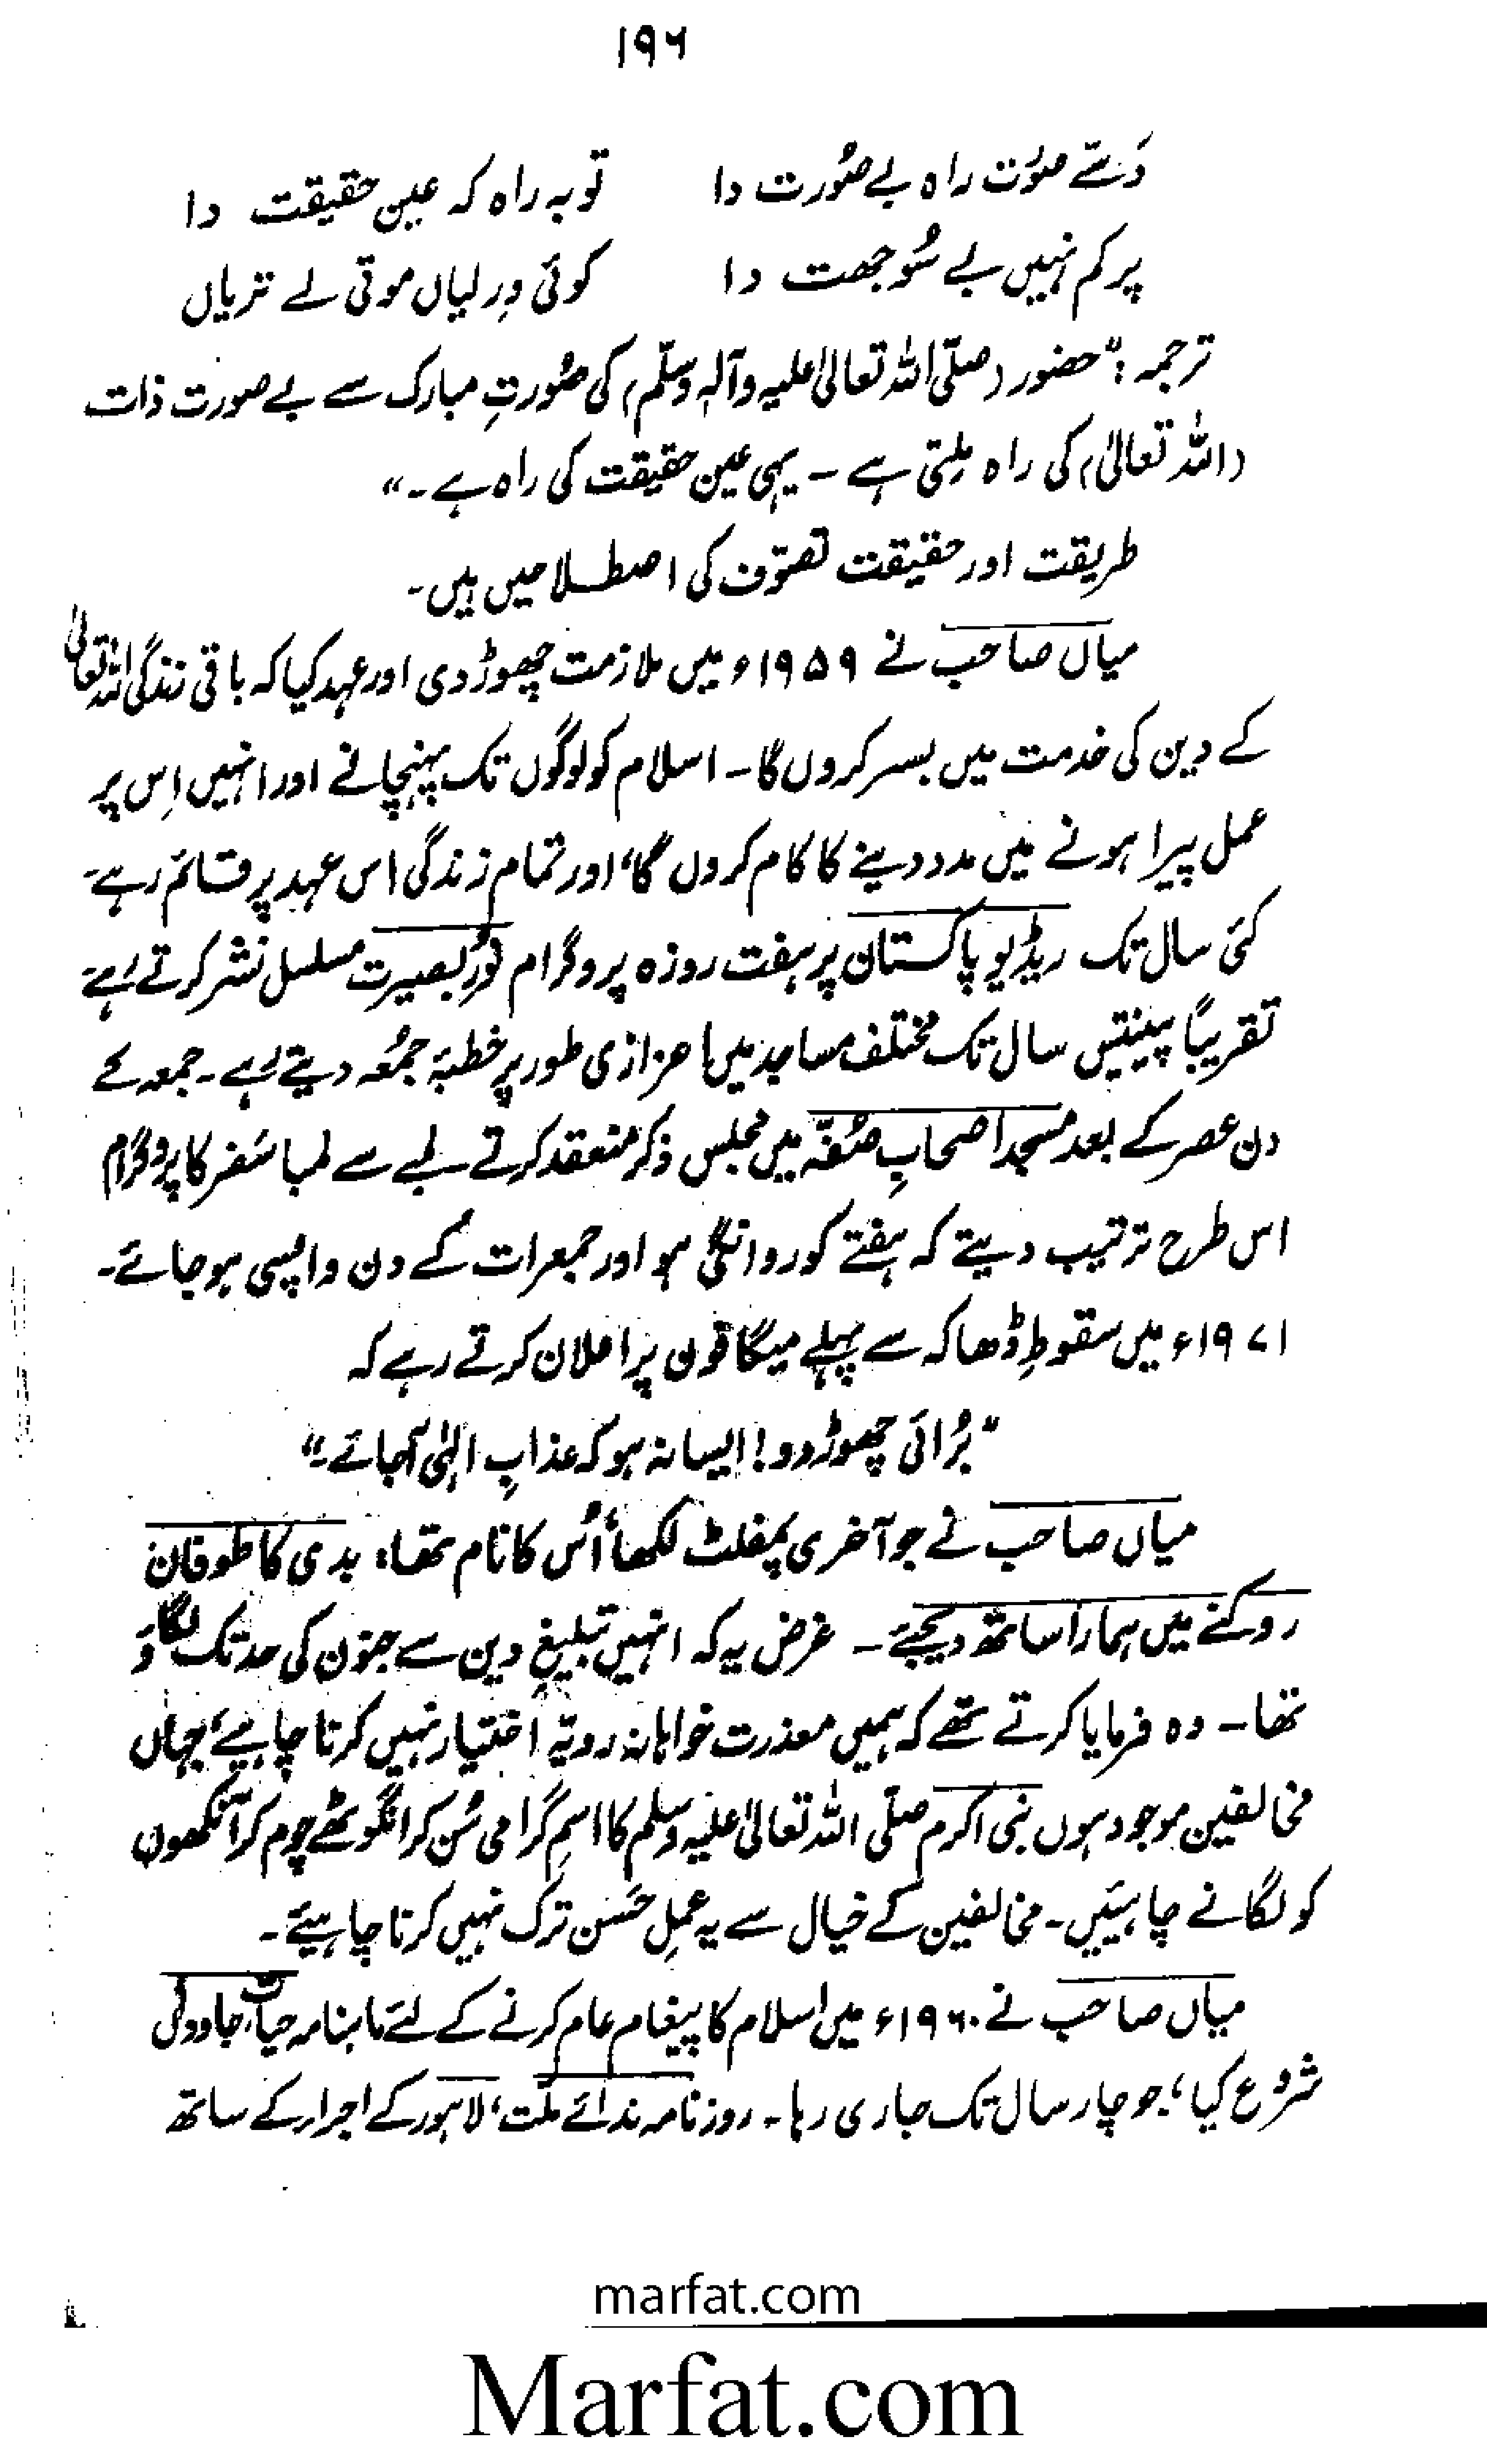 ۱۹۶
دَسّے صوُرت راہ بے صُورت دا توبہ راہ کہ عین حقیقت دا
پر کم نہیں بے سُوجھت دا کوئی وِرلیاں موتی لے تریاں
ترجمہ : "حضور (صلّی اللہ تعالیٰ علیہ وآلہٖ وسلّم) کی صُورتِ مبارک سے بے صورت ذات
(اللہ تعالیٰ) کی راہ مِلتی ہے ۔ یہی عین حقیقت کی راہ ہے ۔"
طریقت اور حقیقت تصوّف کی اصطلاحیں ہیں ۔
میاں صاحب نے ۱۹۵۹ء میں ملازمت چھوڑ دی اور عہد کیا کہ باقی زندگی اللہ تعالیٰ
کے دین کی خدمت میں بسر کروں گا ۔ اسلام کو لوگوں تک پہنچانے اور انہیں اِس پر
عمل پیرا ہونے میں مدد دینے کا کام کروں گا، اور تمام زندگی اس عہد پر قائم رہے ۔
کئی سال تک ریڈیو پاکستان پر ہفت روزہ پروگرام نُورِ بصیرت مسلسل نشر کرتے رہے ۔
تقریباً پینتیس سال تک مختلف مساجد میں اعزازی طور پر خطبۂ جمُعہ دیتے رہے ۔ جمعہ کے
دن عصر کے بعد مسجد اصحابِ صُفّہ میں مجلس ذکر منعقد کرتے لمبے سے لمبا سَفر کا پروگرام
اس طرح ترتیب دیتے کہ ہفتے کو روانگی ہو اور جمعرات کے دن واپسی ہو جائے ۔
۱۹۷۱ء میں سقوطِ ڈھاکہ سے پہلے میگا فون پر اعلان کرتے رہے کہ
"بُرائی چھوڑ دو ! ایسا نہ ہو کہ عذابِ الٰہی آجائے ۔"
میاں صاحب نے جو آخری پمفلٹ لکھا، اُس کا نام تھا : بدی کا طوفان
روکنے میں ہمارا ساتھ دیجئے ۔ غرض یہ کہ انہیں تبلیغِ دین سے جنون کی حد تک لگاؤ
تھا ۔ وہ فرمایا کرتے تھے کہ ہمیں معذرت خواہانہ رویّہ اختیار نہیں کرنا چاہیے، جہاں
مخالفین موجود ہوں نبی اکرم صلّی اللہ تعالیٰ علیہ وسلم کا اسمِ گرامی سُن کر انگوٹھے چوم کر آنکھوں
کو لگانے چاہئیں ۔ مخالفین کے خیال سے یہ عملِ حَسن ترک نہیں کرنا چاہیئے ۔
میاں صاحب نے ۱۹۶۰ء میں اسلام کا پیغام عام کرنے کے لئے ماہنامہ حیاتِ جاودانی
شروع کیا، جو چار سال تک جاری رہا ۔ روزنامہ ندائے ملّت، لاہور کے اجراء کے ساتھ
marfat.com
Marfat.com